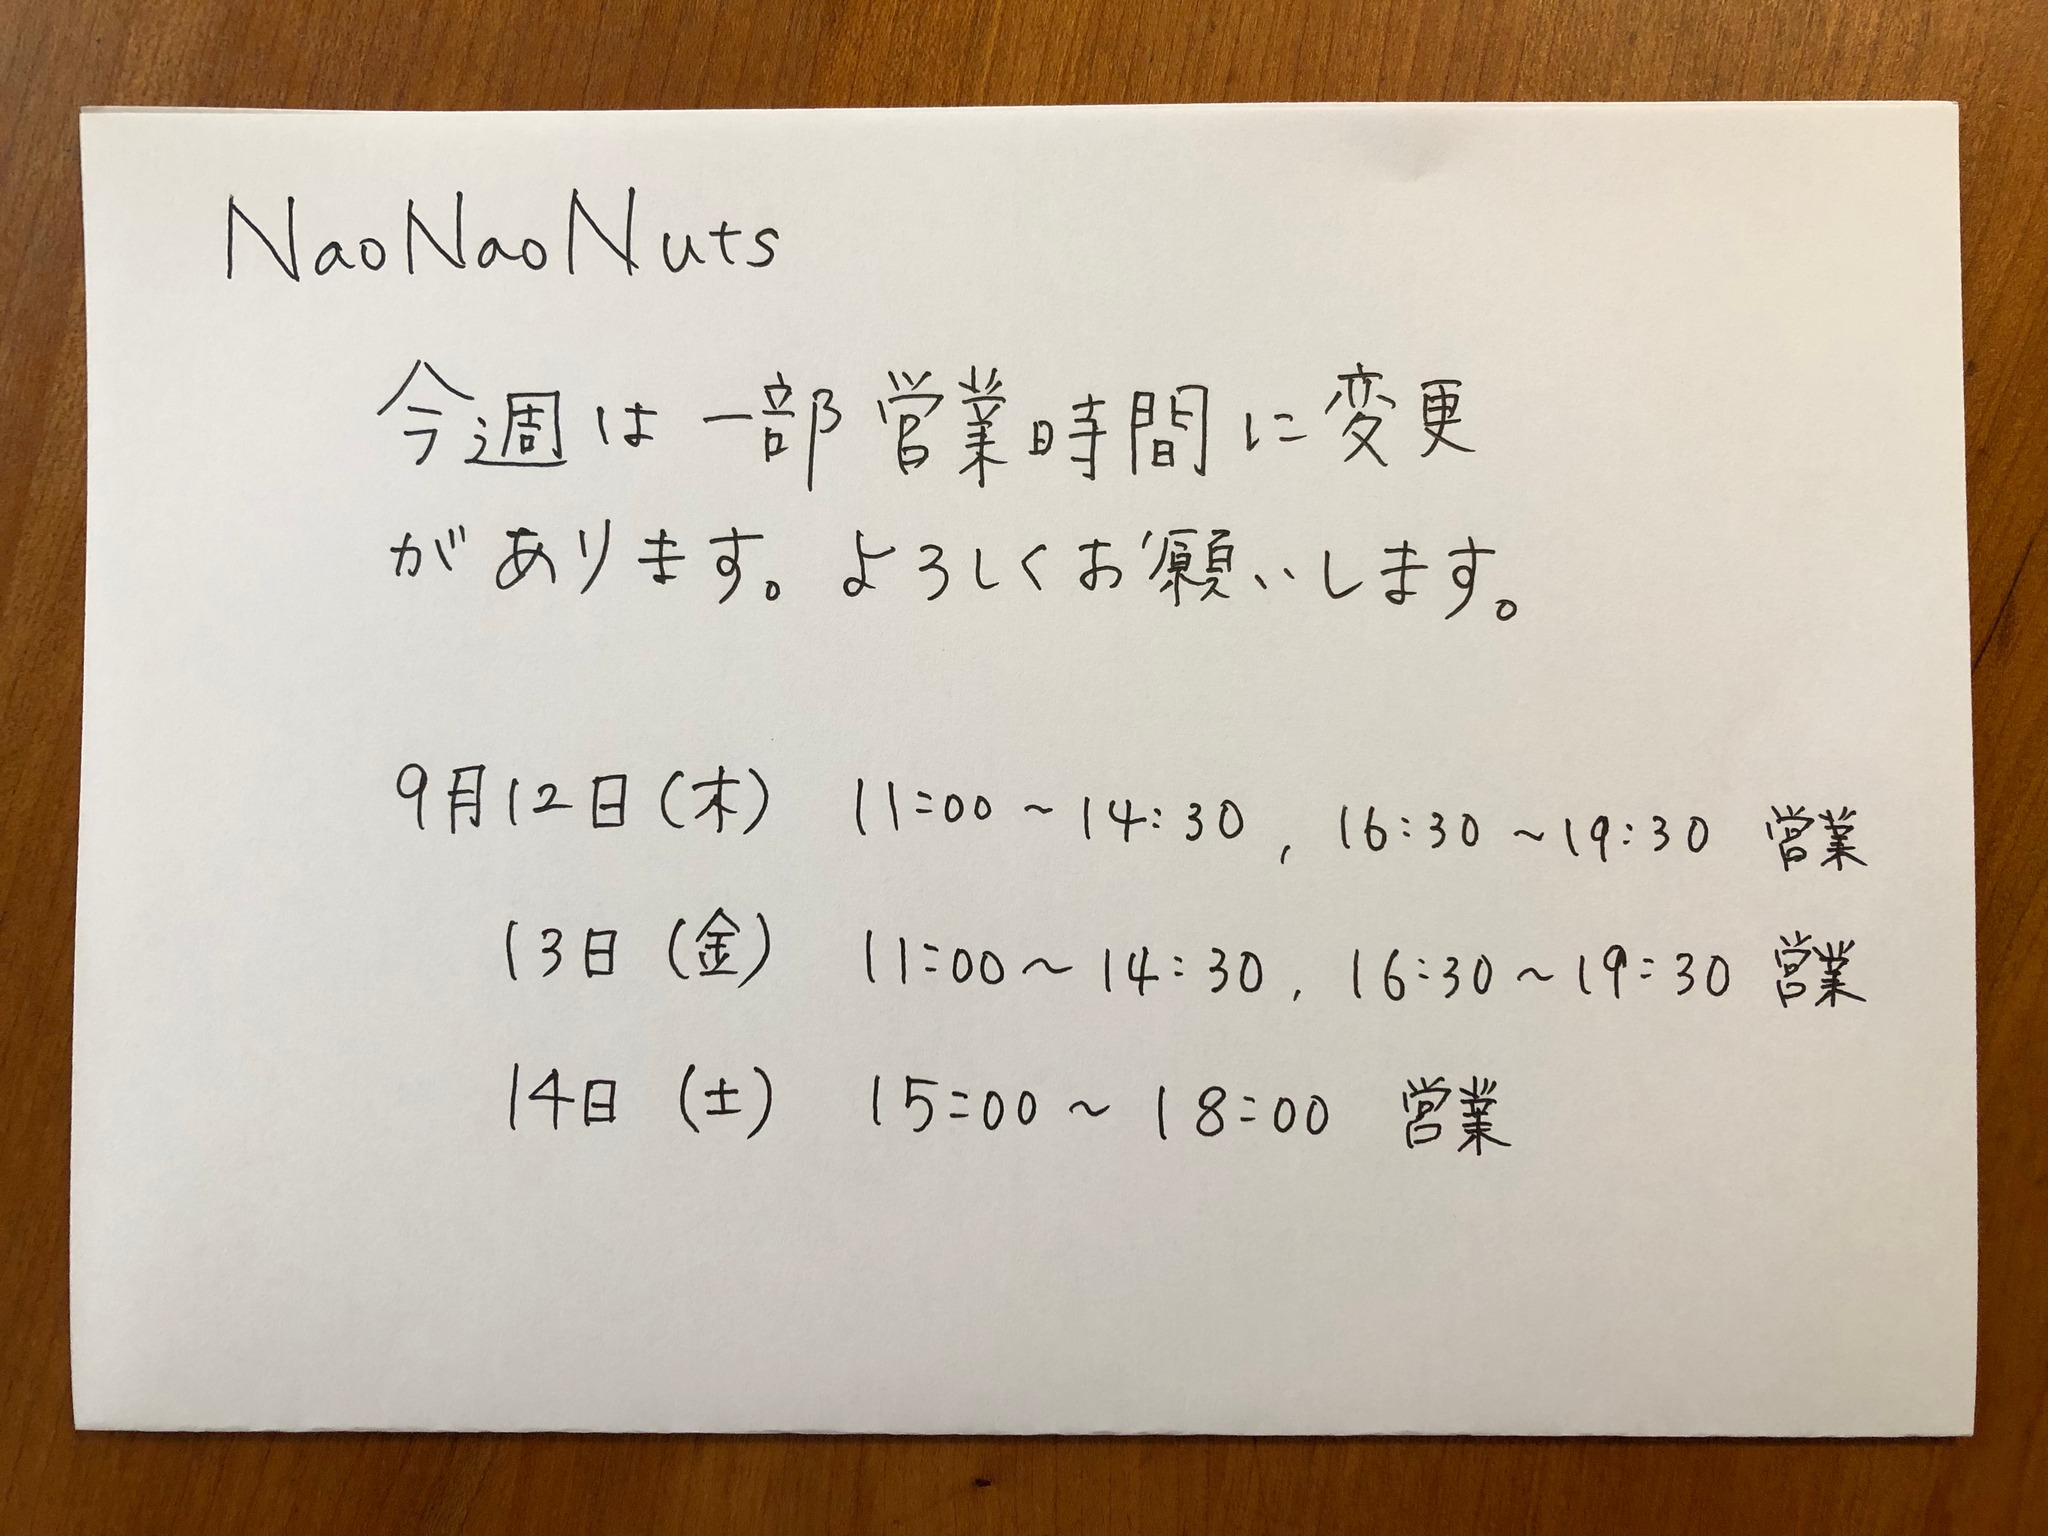 NaoNaoNuts
今週は一部営業時間に変更
があります。よろしくお願いします。
9月12日(木) 11:00～14:30, 16:30～19:30 営業
13日(金) 11:00～14:30, 16:30～19:30 営業
14日(土) 15:00～18:00 営業